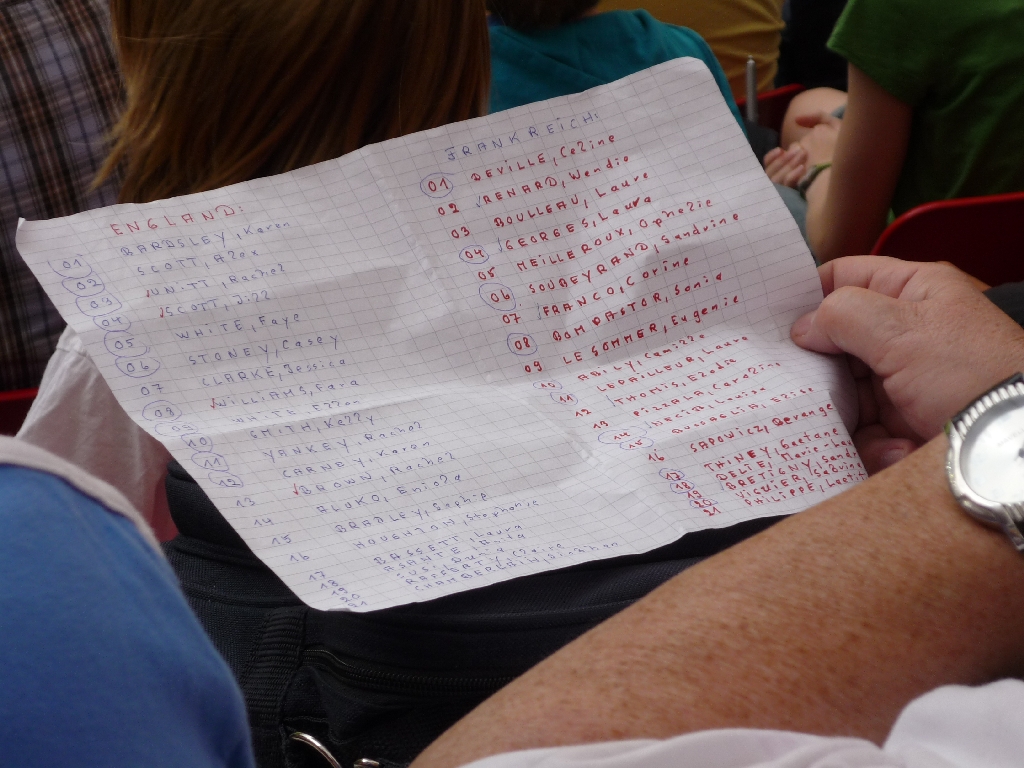 ENGLAND:
01 BARDSLEY, Karen
02 SCOTT, Alex
03 UNITT, Rachel
04 SCOTT, Jill
05 WHITE, Faye
06 STONEY, Casey
07 CLARKE, Jessica
08 WILLIAMS, Fara
09 WHITE, Ellen
10 SMITH, Kelly
11 YANKEY, Rachel
12 CARNEY, Karen
13 BROWN, Rachel
14 ALUKO, Eniola
15 BRADLEY, Sophie
16 HOUGHTON, Stephanie
17 BASSETT, Laura
18 ASANTE, Anita
19 SUSI, Dunia
20 RAFFERTY, Claire
21 CHAMBERLAIN, Siobhan
FRANKREICH:
01 DEVILLE, Celine
02 RENARD, Wendie
03 BOULLEAU, Laure
04 GEORGES, Laura
05 MEILLEROUX, Ophelie
06 SOUBEYRAND, Sandrine
07 FRANCO, Corine
08 BOMPASTOR, Sonia
09 LE SOMMER, Eugenie
10 ABILY, Camille
11 LEPAILLEUR, Laure
12 THOMIS, Elodie
13 PIZZALA, Caroline
14 NECIB, Louisa
15 BUSSAGLIA, Elise
16 SAPOWICZ, Berange
17 THINEY, Gaetane
18 DELIE, Marie-La
19 BRETIGNY, Sand
20 VIGUIER, Sabrin
21 PHILIPPE, Laeti